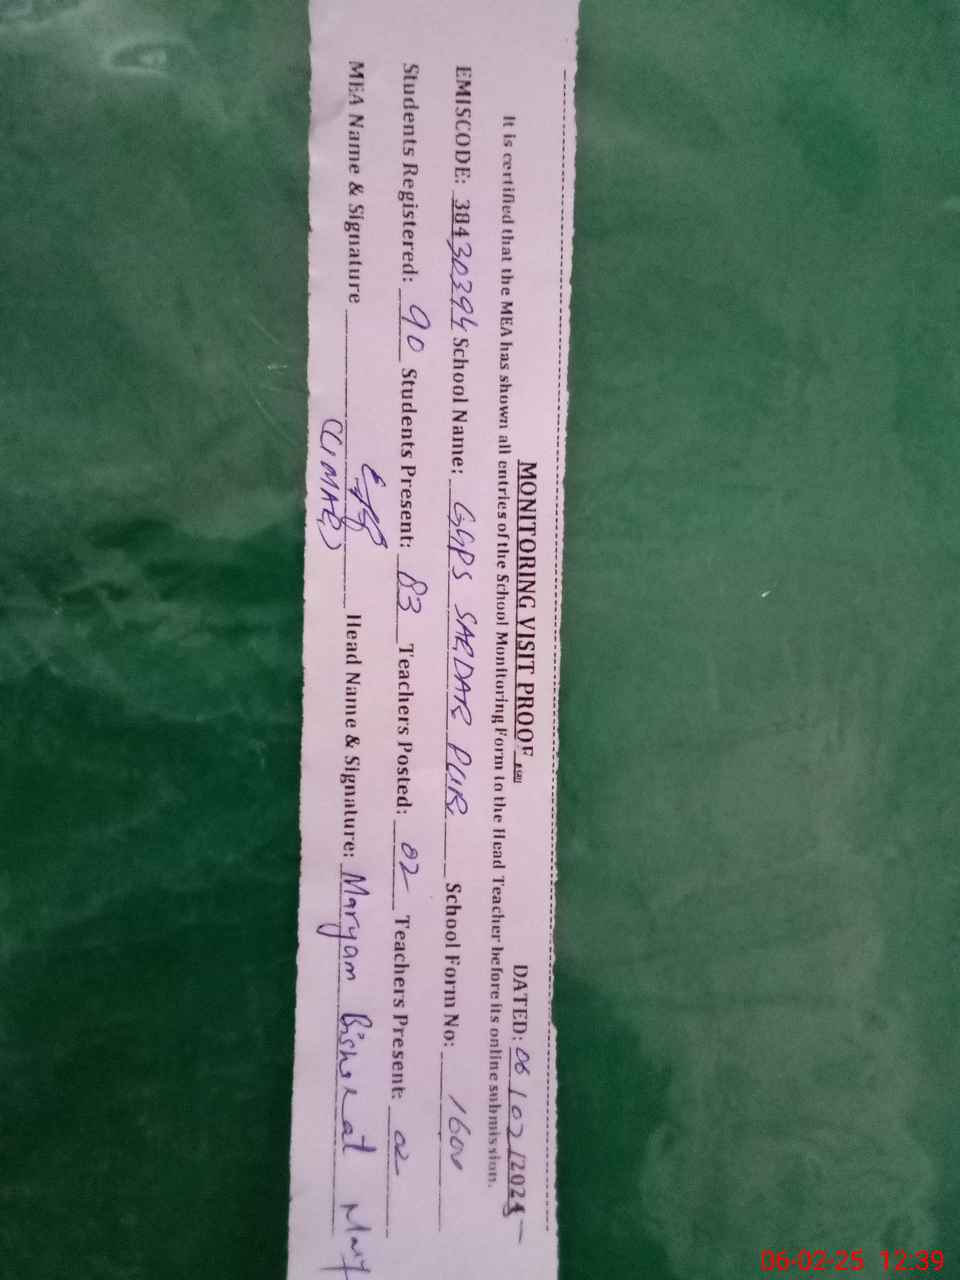 MONITORING VISIT PROOF DATED: 06/02/2025
It is certified that the MEA has shown all entries of the School Monitoring Form to the Head Teacher before its online submission.
EMISCODE: 38430394 School Name: GGPS SARDAR PUR School Form No:
Students Registered: 90 Students Present: 83 Teachers Posted: 02 Teachers Present: 02
MEA Name & Signature (UMAR) Head Name & Signature: Maryam
06-02-25 12:39